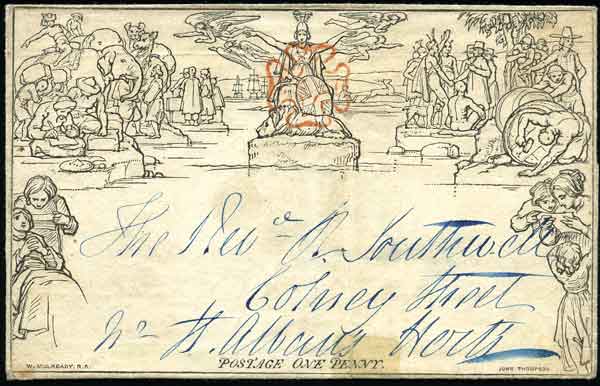 The Revd R. Southwell
Colney Street
Nr St. Albans Herts
POSTAGE ONE PENNY.
W. MULREADY, R.A.
JOHN THOMPSON